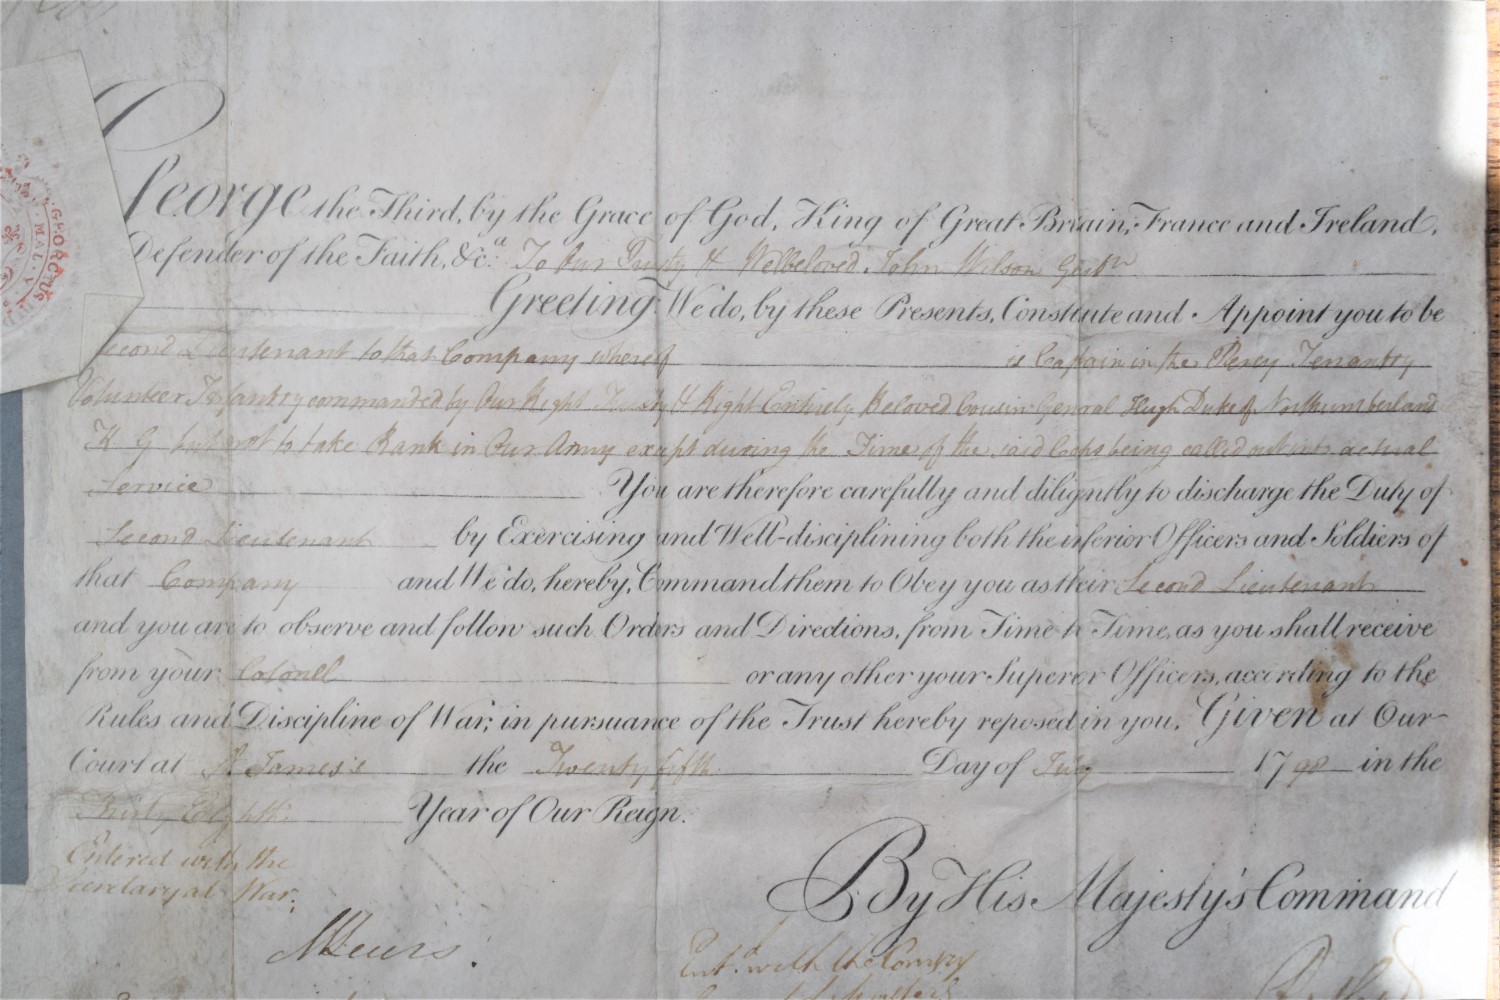 George the Third, by the Grace of God, King of Great Britain, France and Ireland,
Defender of the Faith, &c.a To Our Trusty & Welbeloved John Wilson Gent.
Greeting: We do, by these Presents, Constitute and Appoint you to be
Second Lieutenant to that Company whereof is Captain in the Percy Tenantry
Volunteer Infantry commanded by Our Right Trusty & Right Entirely Beloved Cousin General Hugh Duke of Northumberland
K G but not to take Rank in Our Army except during the Time of the said Corps being called out into actual
Service You are therefore carefully and diligently to discharge the Duty of
Second Lieutenant by Exercising and Well-disciplining both the inferior Officers and Soldiers of
that Company and We do, hereby, Command them to Obey you as their Second Lieutenant
and you are to observe and follow such Orders and Directions, from Time to Time, as you shall receive
from your Colonel or any other your Superior Officers, according to the
Rules and Discipline of War, in pursuance of the Trust hereby reposed in you. Given at Our
Court at St James's the Twenty fifth Day of July 1798 in the
Thirty Eighth Year of Our Reign.
Entered with the
Secretary at War.
By His Majesty's Command
Ent.d with the Comsy
GEORGIUS